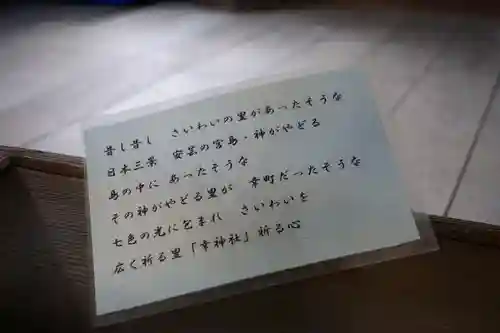 昔し昔し　さいわいの里があったそうな
日本三景　安芸の宮島・神がやどる
島の中に　あったそうな
その神がやどる里が　幸町だったそうな
七色の光に包まれ　さいわいを
広く祈る里「幸神社」祈る心